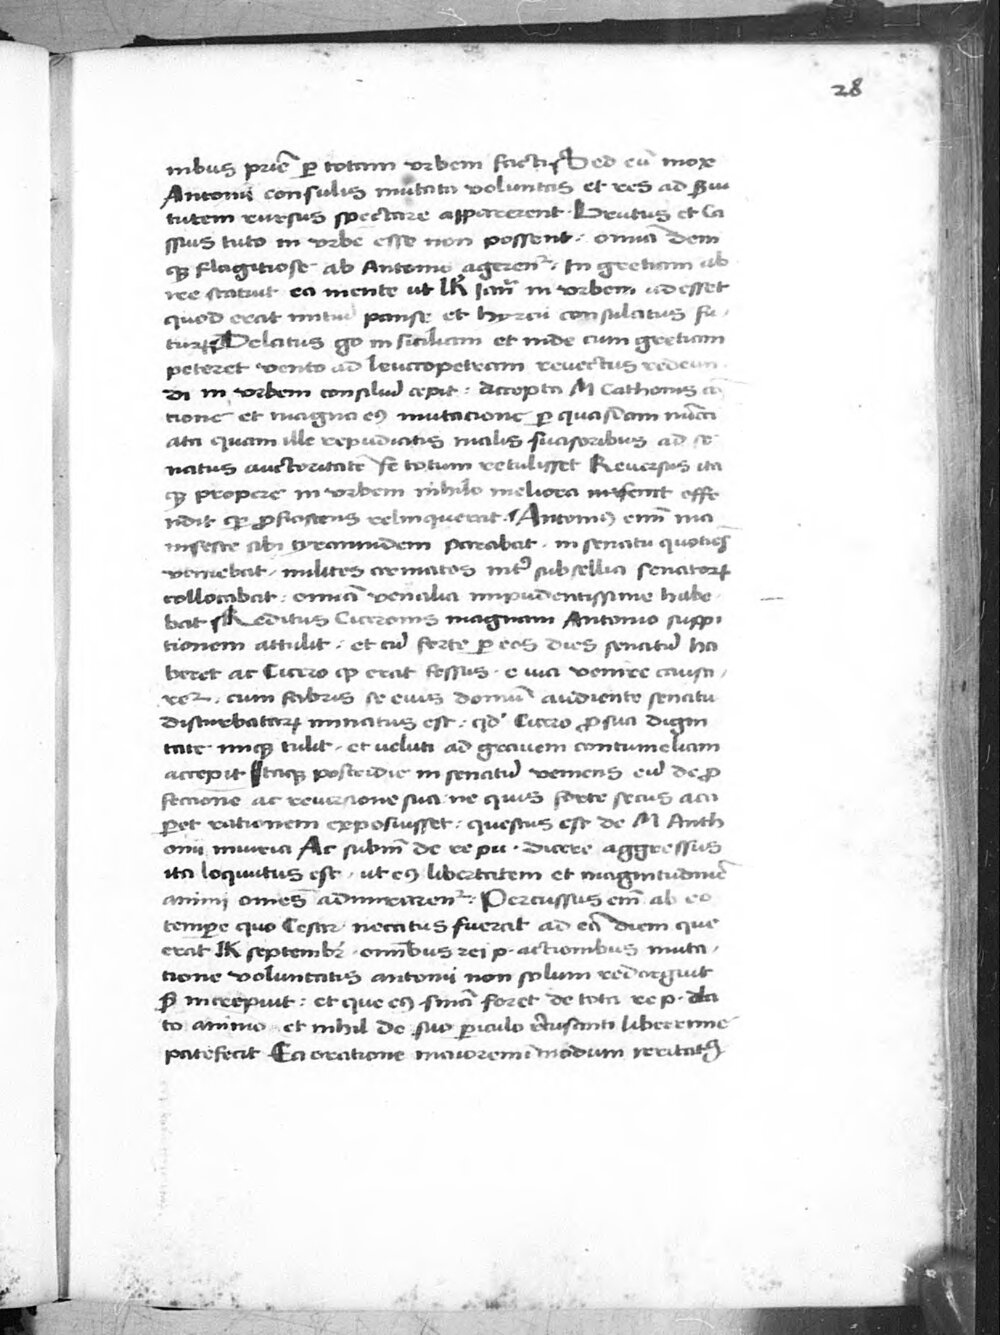 28
nibus priē ꝑ totam vrbem factis Sed cū mox
Antonii consulis mutata voluntas et res ad ẜui
tutem rursus spectare apparerent · Brutus et Ca
ssius tuto in vrbe esse non possent · omīa dem
qꝫ flagitiose ab Antonio agerenᵗ · In gretiam ab
ire statuit ea mente ut lk̅ Ian̄ in vrbem adesset
quod erat initiū panse et hyrcii consulatus fu ·
turꝝ Delatus go in siciliam et inde cum gretiam
peteret vento ad leucopetram reuectus redeun ·
di in vrbem consiliū cepit · Accepta M Cathonis
tione et magna eꝰ mutacione ꝑ quasdam nūci
ata quam ille repudiatis malis suasoribus ad se
natus auctoritatē se totum retulisset Reuersus ita
qꝫ propere in vrbem nihilo meliora inuenit offe
ndit ꝓficiscens relinquerat · Antoniꝰ enī ma
nifeste sibi tyrannidem parabat · in senatu quotiēs
veniebat · milites armatos intͬ subsellia senatorꝝ
collocabat · omīa venalia impudentissime habe ·
bat Reditus Ciceronis magnam Antonio suspi
tionem attulit · et cū forte ꝑ eos dies senatū ha
beret ac Cicero qꝫ erat fessus · e uia venire causa ·
reᵗ · cum fabris se eius domū audiente senatu
disturbaturꝝ minatus est · qđ Cicero ꝓ sua digni
tate iniqꝫ tulit · et veluti ad grauem contumeliam
accepit Itaqꝫ postridie in senatū veniens cū de ꝓ
fectione ac reuersione sua ne quis forte secus acci
ꝑet rationem exposuisset · questus est de M Anth
onii iniuria Ac subinde de re pu · dicere aggressus
ita loquutus est · ut eꝰ libertatem et magnitudinē
animi omēs admirarenᵗ · Percussus enī ab eo
tempore quo Cesar necatus fuerat ad eā diem que
erat lk̅ septembr̄ · omībus rei p · actionibus muta ·
tione voluntatis antonii non solum redarguit
ẜ increpuit · et que eꝰ sniā foret de tota re p · dla
to animo · et nihil de suo ꝑiculo liberrime
patefecit Ea oratione maiorem in modum irritatꝰ